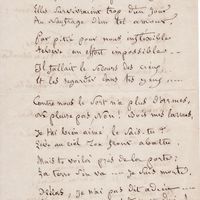 Elles survivraient trop d'un jour
Au naufrage d'un tel amour,
Par pitié pour nous
un effort impossible
Il fallait le secours des cieux
Et les regarder dans tes yeux
Contre nous le Sort n'a plus d'armes,
ne pleure pas Non! Bois mes larmes,
Je t'ai bien aimé le Sais-tu?
au ciel
Mais te voilà près de la porte:
La terre s'en va Je suis morte.
Hélas, Je n'ai pas dit adieu